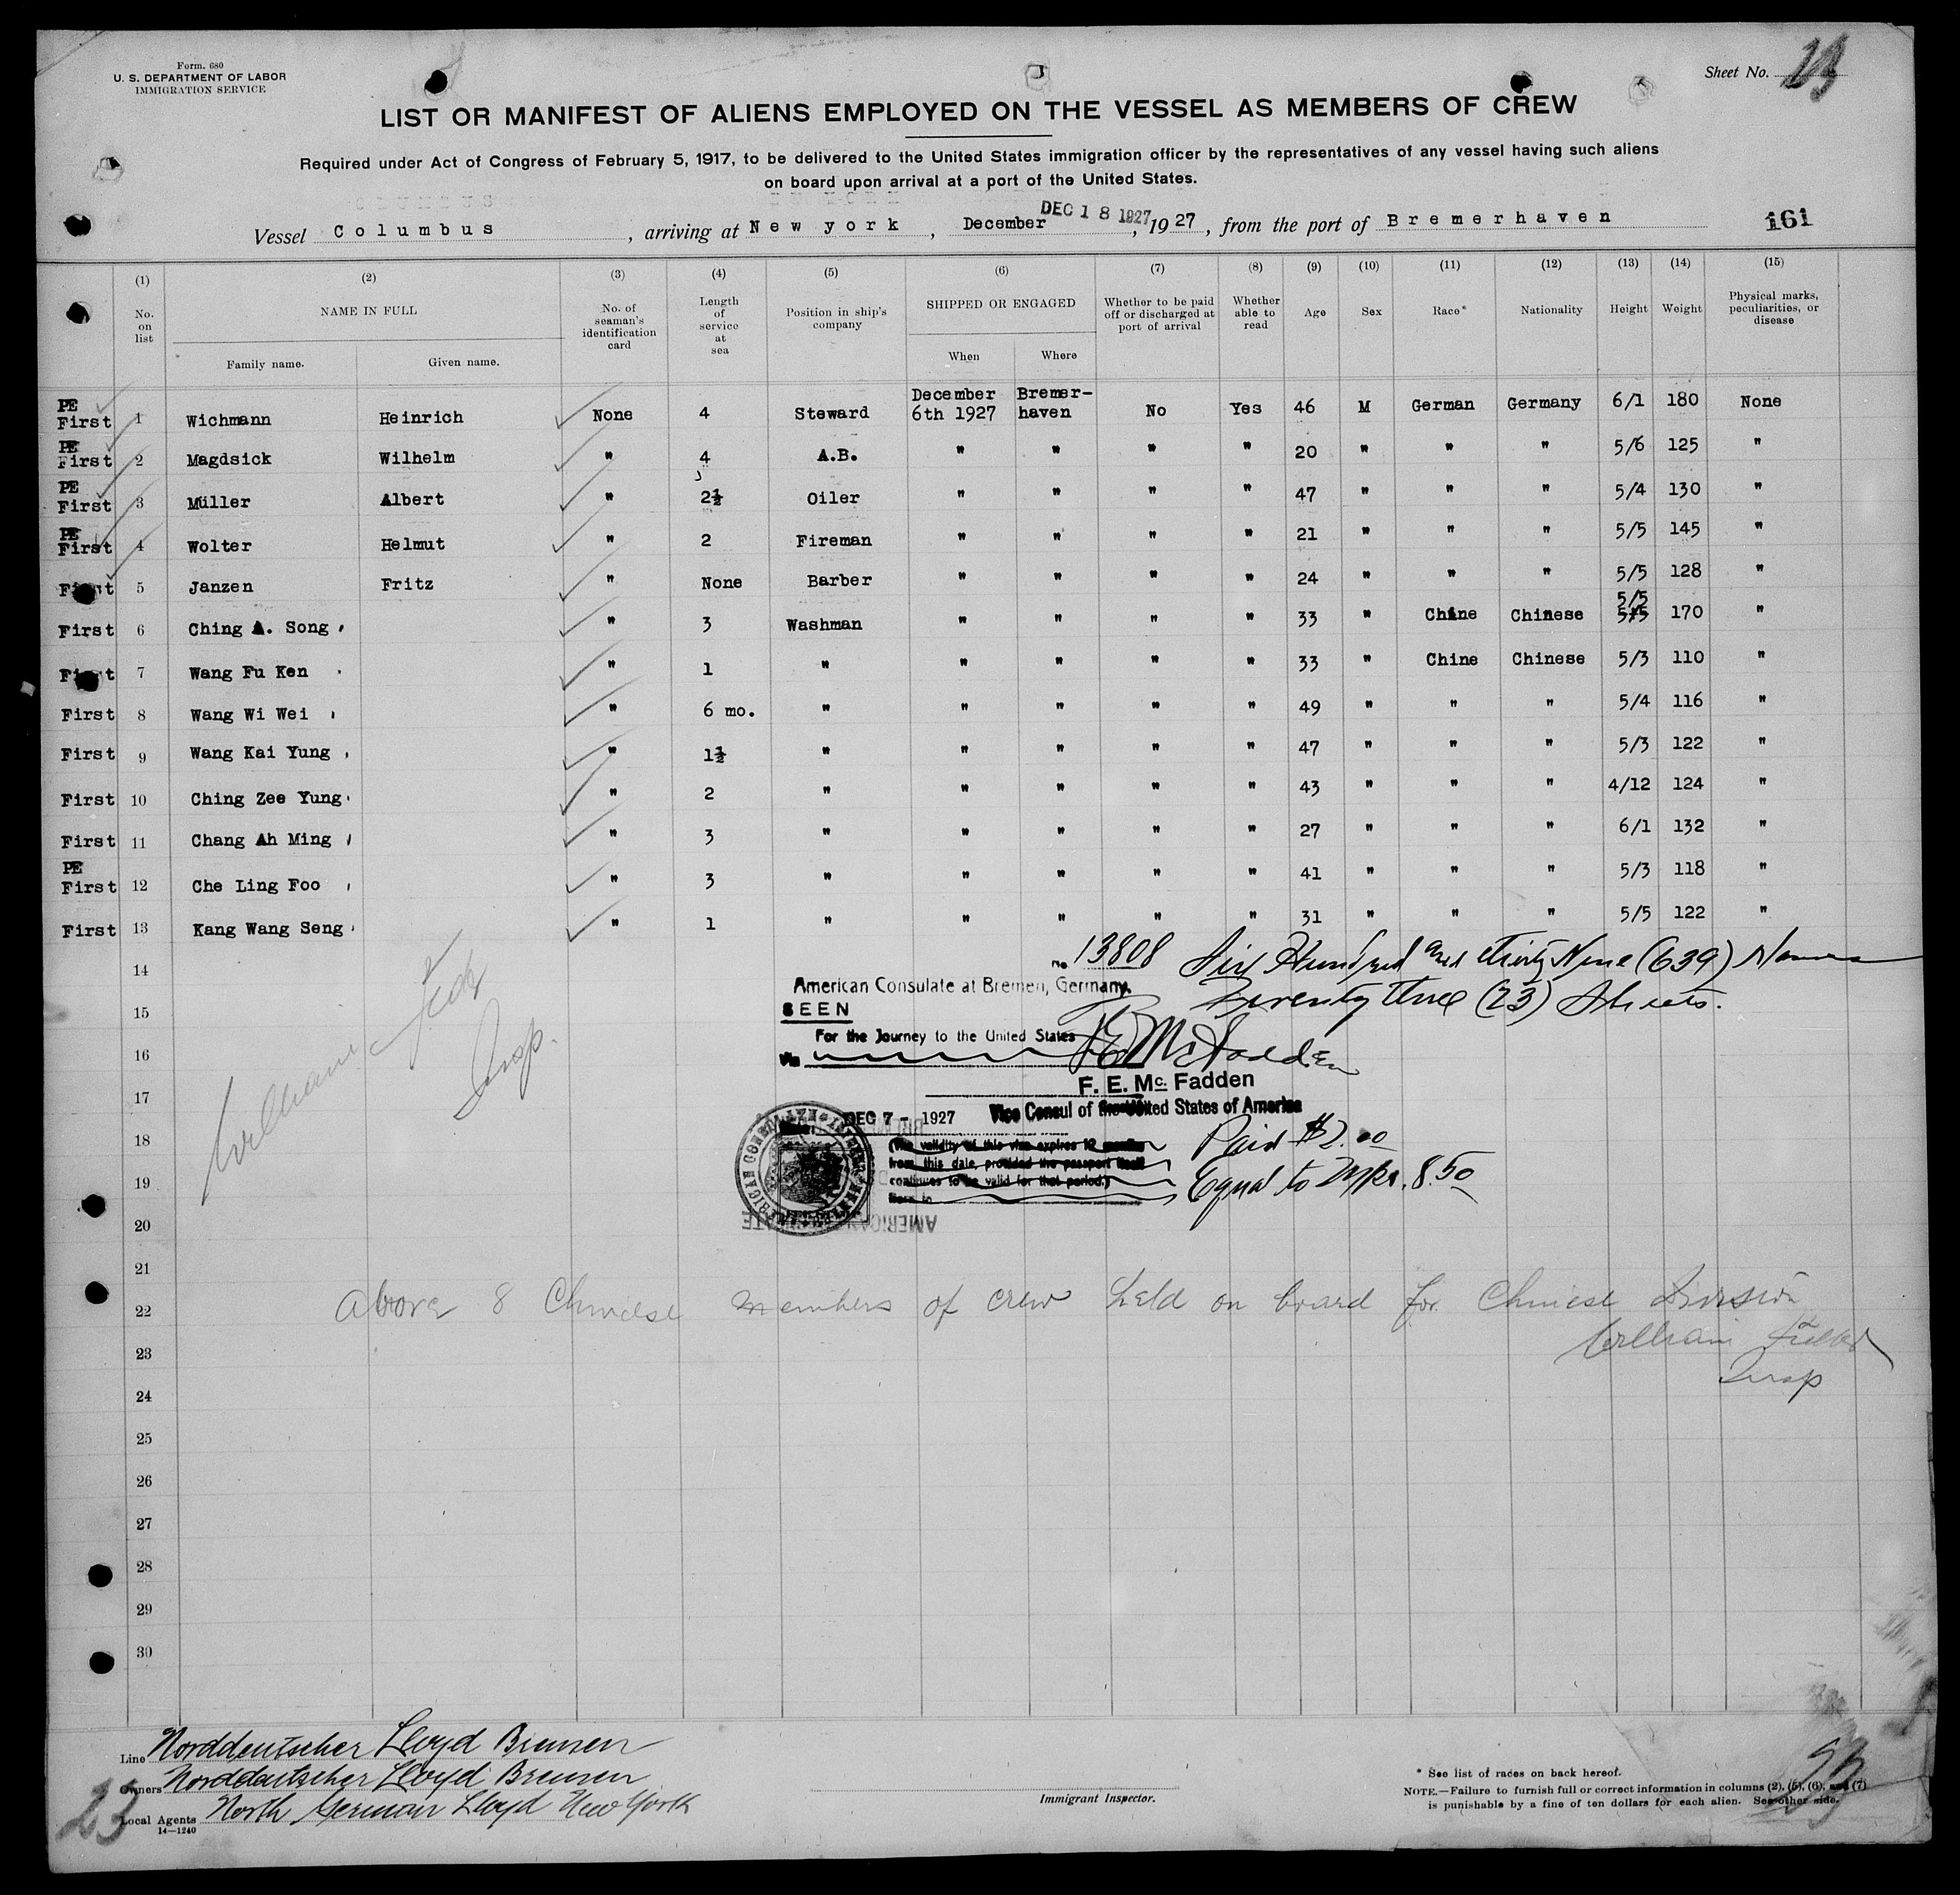 Form. 680
U. S. DEPARTMENT OF LABOR
IMMIGRATION SERVICE
Sheet No. 23
LIST OR MANIFEST OF ALIENS EMPLOYED ON THE VESSEL AS MEMBERS OF CREW
Required under Act of Congress of February 5, 1917, to be delivered to the United States immigration officer by the representatives of any vessel having such aliens
on board upon arrival at a port of the United States.
Vessel Columbus, arriving at New york, December DEC 18 1927, 1927, from the port of Bremerhaven 161
(1) (2) (3) (4) (5) (6) (7) (8) (9) (10) (11) (12) (13) (14) (15)
No. on list NAME IN FULL Family name. Given name. No. of seaman's identification card Length of service at sea Position in ship's company SHIPPED OR ENGAGED When Where Whether to be paid off or discharged at port of arrival Whether able to read Age Sex Race* Nationality Height Weight Physical marks, peculiarities, or disease
PE First 1 Wichmann Heinrich None 4 Steward December 6th 1927 Bremer-haven No Yes 46 M German Germany 6/1 180 None
PE First 2 Magdsick Wilhelm " 4 A.B. " " " " 20 " " " 5/6 125 "
PE First 3 Müller Albert " 2½ Oiler " " " " 47 " " " 5/4 130 "
PE First 4 Wolter Helmut " 2 Fireman " " " " 21 " " " 5/5 145 "
First 5 Janzen Fritz " None Barber " " " " 24 " " " 5/5 128 "
First 6 Ching A. Song " 3 Washman " " " " 33 " Chine Chinese 5/5 170 "
First 7 Wang Fu Ken " 1 " " " " " 33 " Chine Chinese 5/3 110 "
First 8 Wang Wi Wei " 6 mo. " " " " " 49 " " " 5/4 116 "
First 9 Wang Kai Yung " 1½ " " " " " 47 " " " 5/3 122 "
First 10 Ching Zee Yung " 2 " " " " " 43 " " " 4/12 124 "
First 11 Chang Ah Ming " 3 " " " " " 27 " " " 6/1 132 "
PE First 12 Che Ling Foo " 3 " " " " " 41 " " " 5/3 118 "
First 13 Kang Wang Seng " 1 " " " " " 31 " " " 5/5 122 "
14
15
16
17
18
19
20
21
22
23
24
25
26
27
28
29
30
No. 13808 Six Hundred and thirty Nine (639) Names
Twenty three (23) Sheets.
American Consulate at Bremen, Germany.
SEEN
For the Journey to the United States
Via
F E McFadden
F. E. Mc. Fadden
Vice Consul of the United States of America
DEC 7 - 1927
(The validity of this visa expires 12 months
from this date, provided the passport itself
continues to be valid for that period.)
Paid $2.00
Equal to Mks. 8.50
William
Insp.
Above 8 Chinese members of crew held on board for Chinese Division
William
Insp
Line Norddeutscher Lloyd Bremen
Owners Norddeutscher Lloyd Bremen
Local Agents North German Lloyd New York
14—1240
23
Immigrant Inspector.
* See list of races on back hereof.
NOTE.—Failure to furnish full or correct information in columns (2), (5), (6), and (7)
is punishable by a fine of ten dollars for each alien. See other side.